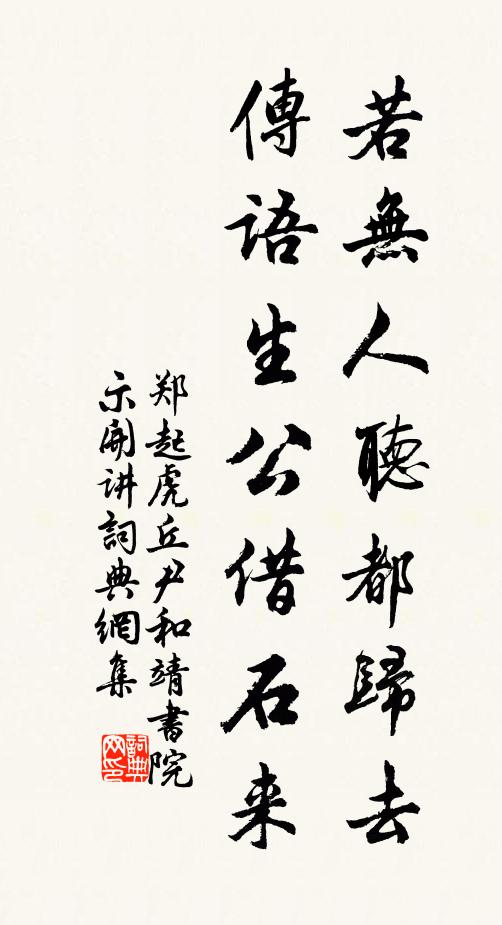 若無人聽都歸去
傳語生公借石来
郑起虎丘尹和靖書院
示開讲詞典網集
詞典
网印